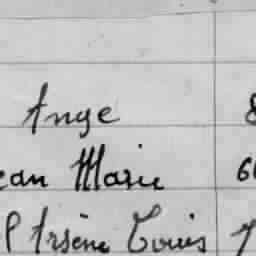 Ange 8
ean Marie 6
l Arsène Louis 7